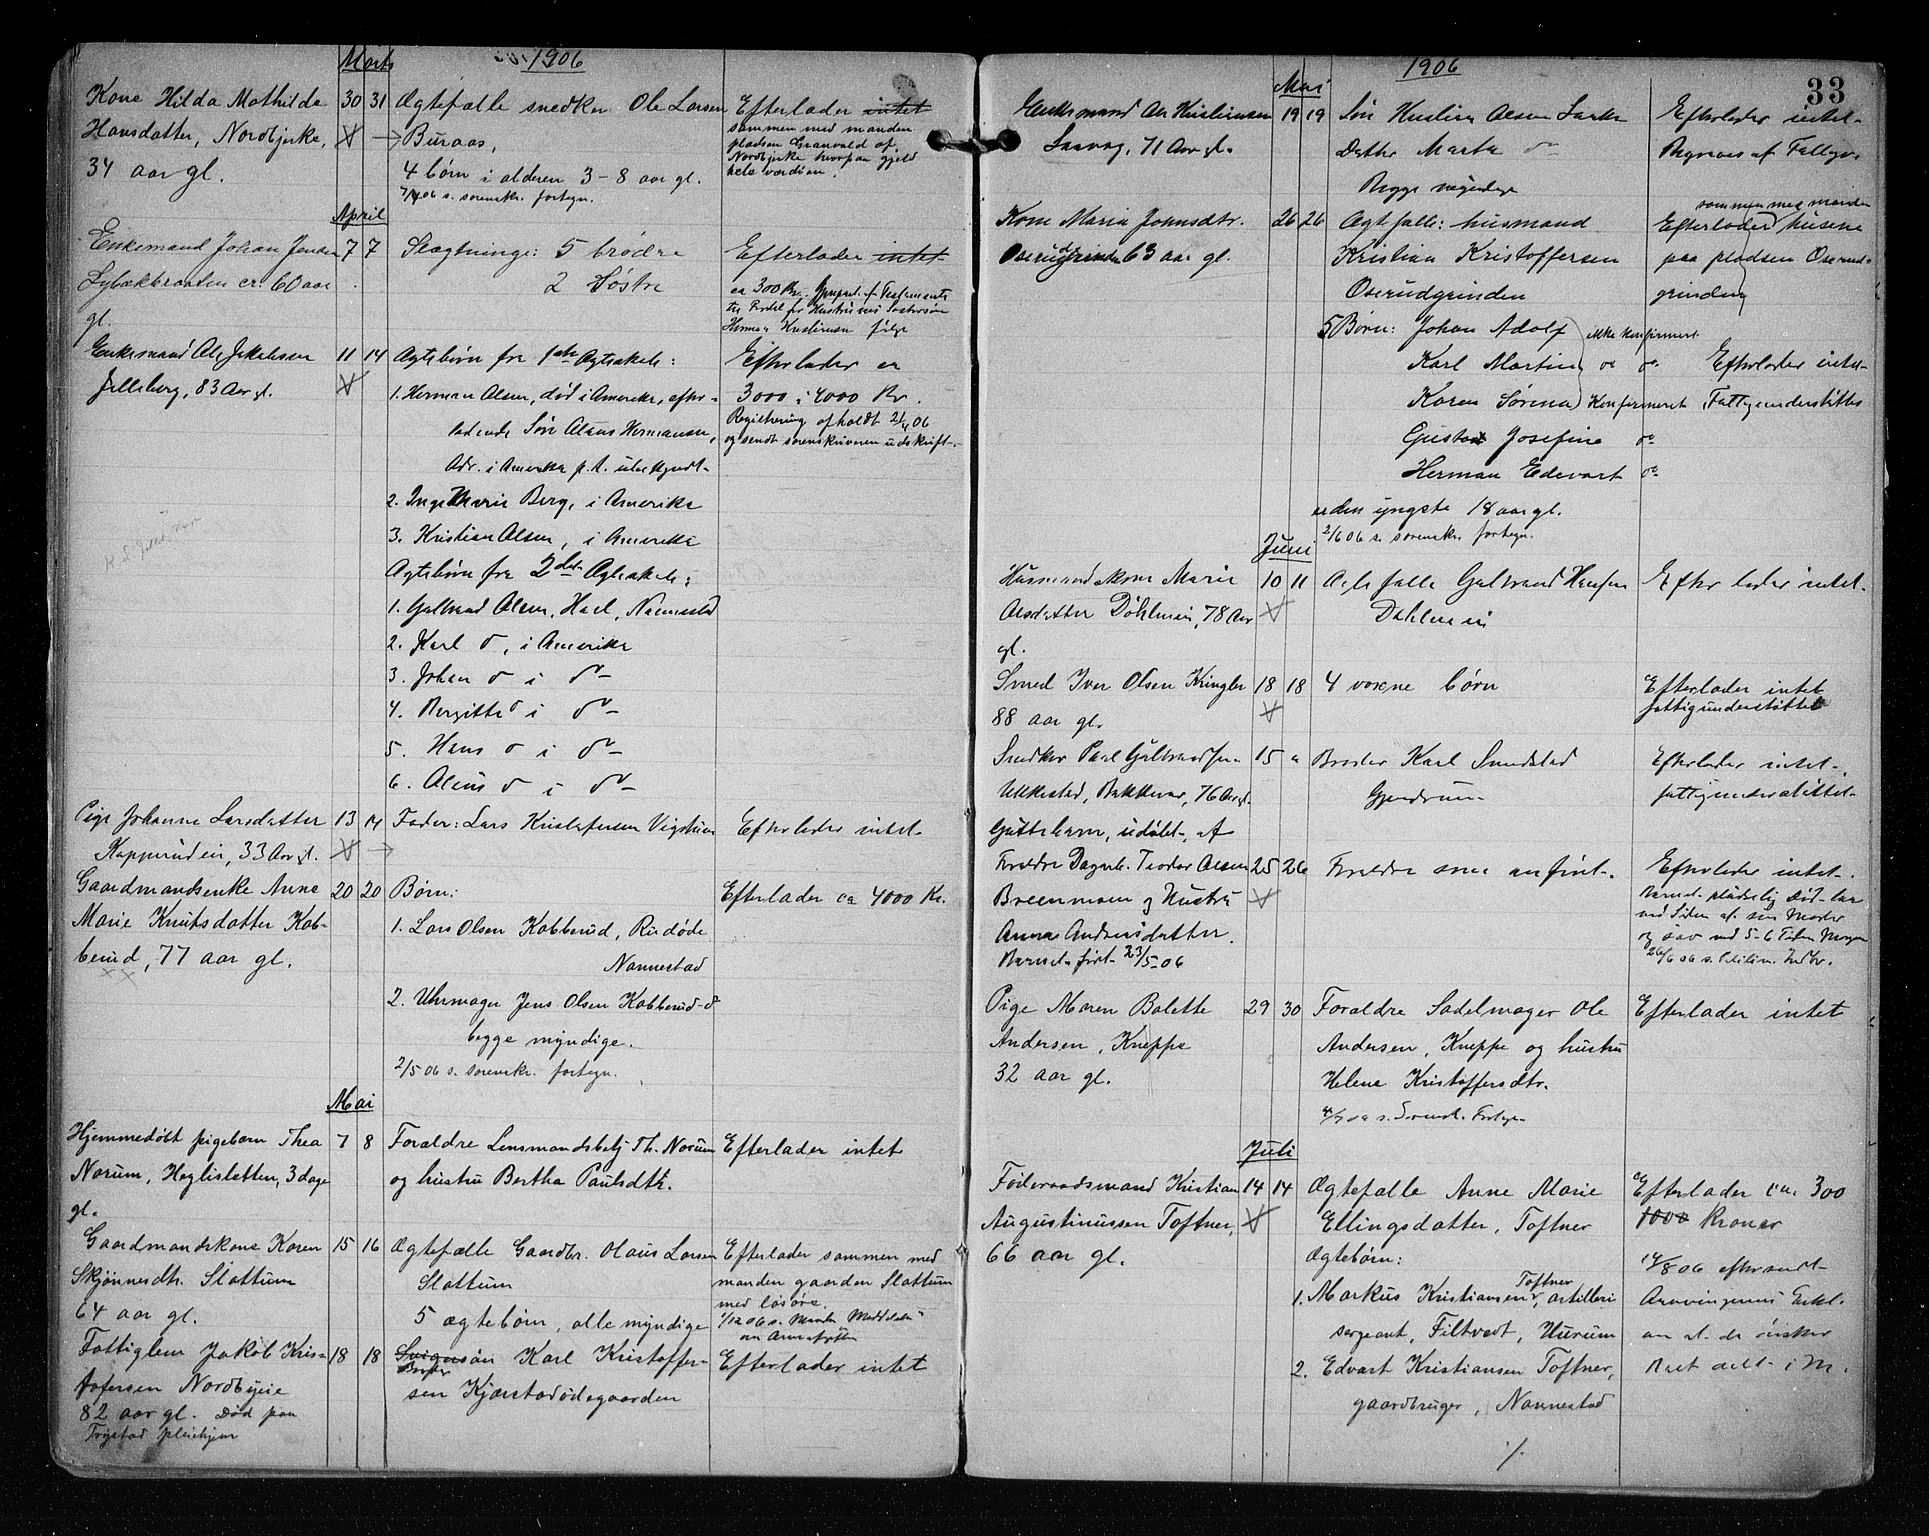 1906
Marts
Kone Hilda Mathilde
Hansdatter, Nordbjerke,
34 aar gl.
30 31
Ægtefælle snedker Ole Larsen
Buraas,
4 børn i alderen 3-8 aar gl.
s. sorenskr. fortegn.
Efterlader intet
sammen med manden
pladsen Granvold af
Nordbjerke hvorpaa gjeld
hele værdien.
April
Enkemand Johan Jensen
60 aar
gl.
7 7
Slægtninge: 5 brødre
2 Søstre
Efterlader intet
ca 300 Kr.
Enkemand Ole Jakobsen
Jellsberg, 83 Aar gl.
11 14
Ægtebørn fra 1ste Ægteskab:
1. Herman Olsen, død i Amerika, efter-
ladende Søn Olaus Hermansen,
Adr. i Amerika p.t. ubekjendt
2. Inge Marie Berg, i Amerika
3. Kristian Olsen, i Amerika
Ægtebørn fra 2det Ægteskab:
1. Gulbrand Olsen, Nannestad
2. Karl do, i Amerika
3. Johan do i do
4. Bergitte do i do
5. Hans do i do
6. Olaus do i do
Efterlader ca
3000 à 4000 Kr.
Registrering afholdt 21/4 06
og sendt sorenskriveren udskrift.
Pige Johanne Larsdatter
Kopperudeie, 33 Aar gl.
13 14
Fader: Lars Kristofersen Vigstuen
Efterlader intet
Gaardmandsenke Anne
Marie Knutsdatter Kob-
berud, 77 aar gl.
20 20
Børn:
1. Lars Olsen Kobberud,
Nannestad
2. Uhrmager Jens Olsen Kobberud do
begge myndige.
2/5 06 s. sorenskr. fortegn.
Efterlader ca 4000 Kr.
Mai
Hjemmedøbt pigebarn Thea
Norum, Heglisletten, 3 dage
gl.
7 8
Forældre Lensmandsbetj Th. Norum
og hustru Bertha Paulsdtr.
Efterlader intet
Gaardmandskone Karen
Skjønnesdtr. Slattum
64 aar gl.
15 16
Ægtefælle Gaardbr. Olaus Larsen
Slattum
5 ægtebørn, alle myndige
Efterlader sammen med
manden gaarden Slattum
med løsøre.
Fattiglem Jakob Kris-
tofersen Nordbyeie
82 aar gl. Død paa
Trøgstad pleiehjem
18 18
Svigersøn Karl Kristoffer-
Broder
sen Kjærstadødegaarden
Efterlader intet
33
1906
Mai
Enkemand Ole Kristiansen
71 Aar gl.
19 19
Søn Kristian Olsen
Datter Marta do
Begge myndige
Efterlader intet
Kone Maria Johnsdtr.
Oserudgrinden 63 aar gl.
26 26
Ægtefælle: husmand
Kristian Kristoffersen
Oserudgrinden
5 Børn: Johan Adolf
Karl Martin
Karen Sørena
Gustav Josefine do
Herman Edevart do
ikke konfirmeret
Konfirmeret
er den yngste 18 aar gl.
2/6 06 s. sorenskr. fortegn.
sammen med manden
Efterlader husene
paa pladsen Oserud-
grinden
Efterlader intet
Fattigunderstøttes
Juni
Husmandskone Marie
Olsdatter Døhleneie, 78 Aar
gl.
10 11
Ægtefælle Gulbrand Hansen
Døhleneie
Efterlader intet
Smed Iver Olsen Kringler
88 aar gl.
18 18
4 voxne børn
Efterlader intet
fattigunderstøttet
Snedker Paul Gulbrandsen
Ukkestad, Bakkevar, 76 Aar gl.
15
Broder Karl Sundstad
Gjerdrum
Efterlader intet,
fattigunderstøttet
Guttebarn, udøbt, af
Forældre Dagarb. Teodor Olsen
Breenmoen og Hustru
Anna Andersdatter.
Barnet født 23/5-06
25 26
Forældre som anført.
Efterlader intet.
Barnet pludselig død
ved Siden af sin Moder
Pige Maren Bolette
Andersen, Kneppe
32 aar gl.
29 30
Forældre Sadelmager Ole
Andersen, Kneppe og hustru
Helene Kristoffersdtr.
Efterlader intet
Juli
Føderaadsmand Kristian
Augustinussen Toftner,
66 aar gl.
14 14
Ægtefælle Anne Marie
Ellingsdatter, Toftner
Ægtebørn:
1. Markus Kristiansen Toftner, artilleri
sergeant, Filtvedt, Hurum
2. Edvart Kristiansen Toftner,
gaardbruger, Nannestad
Efterlader ca. 300
1000 kroner
14/8 06 eftersendt
Arvingernes Erkl.
om at de ønsker
Boet delt i M.